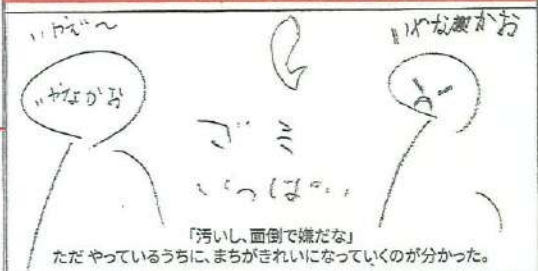 いやだ〜
いやなかお
いやなかお
ゴミ
いっぱい
「汚いし、面倒で嫌だな」
ただ やっているうちに、まちがきれいになっていくのが分かった。